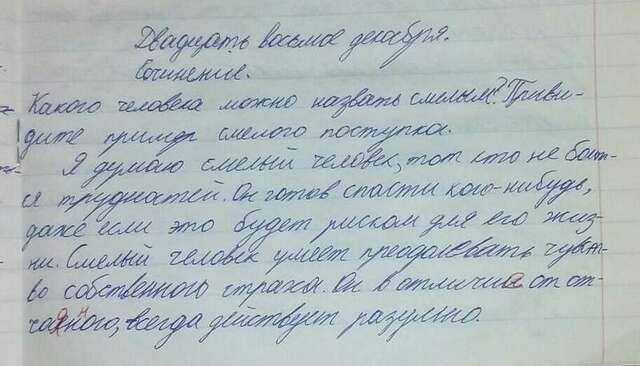 Двадцать восьмое декабря.
Сочинение.
Какого человека можно назвать смелым? Приви-
дите пример смелого поступка.
Я думаю смелый человек, тот кто не боит-
ся трудностей. Он готов спасти кого-нибудь,
даже если это будет риском для его жиз-
ни. Смелый человек умеет преодолевать чувст-
во собственного страха. Он в отличии от от-
чаянного, всегда действует разумно.